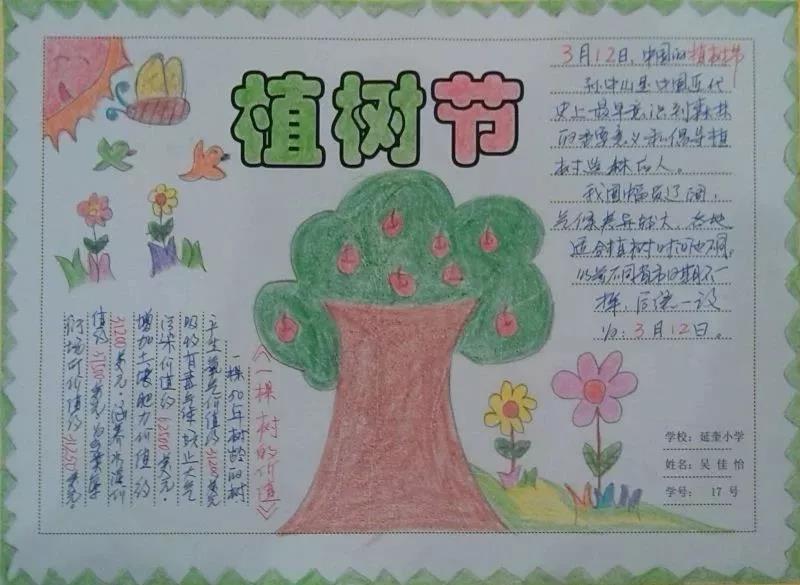 植树节
3月12日,中国的植树节
孙中山是中国近代
史上最早意识到森林
的重要意义和倡导植
树造林的人。
我国幅员辽阔,
气候差异较大,各地
适合植树时间也不同。
以前不同省市日期不一
样,后统一设
为:3月12日。
《一棵树的价值》
一棵50年树龄的树
产生氧气价值约31200美元
吸收有毒气体防止大气
污染价值约 美元
增加土壤肥力价值约
31200美元,涵养水源价
值约 美元,为鸟类
价值约31250美元。
学校: 延奎小学
姓名: 吴佳怡
学号: 17号